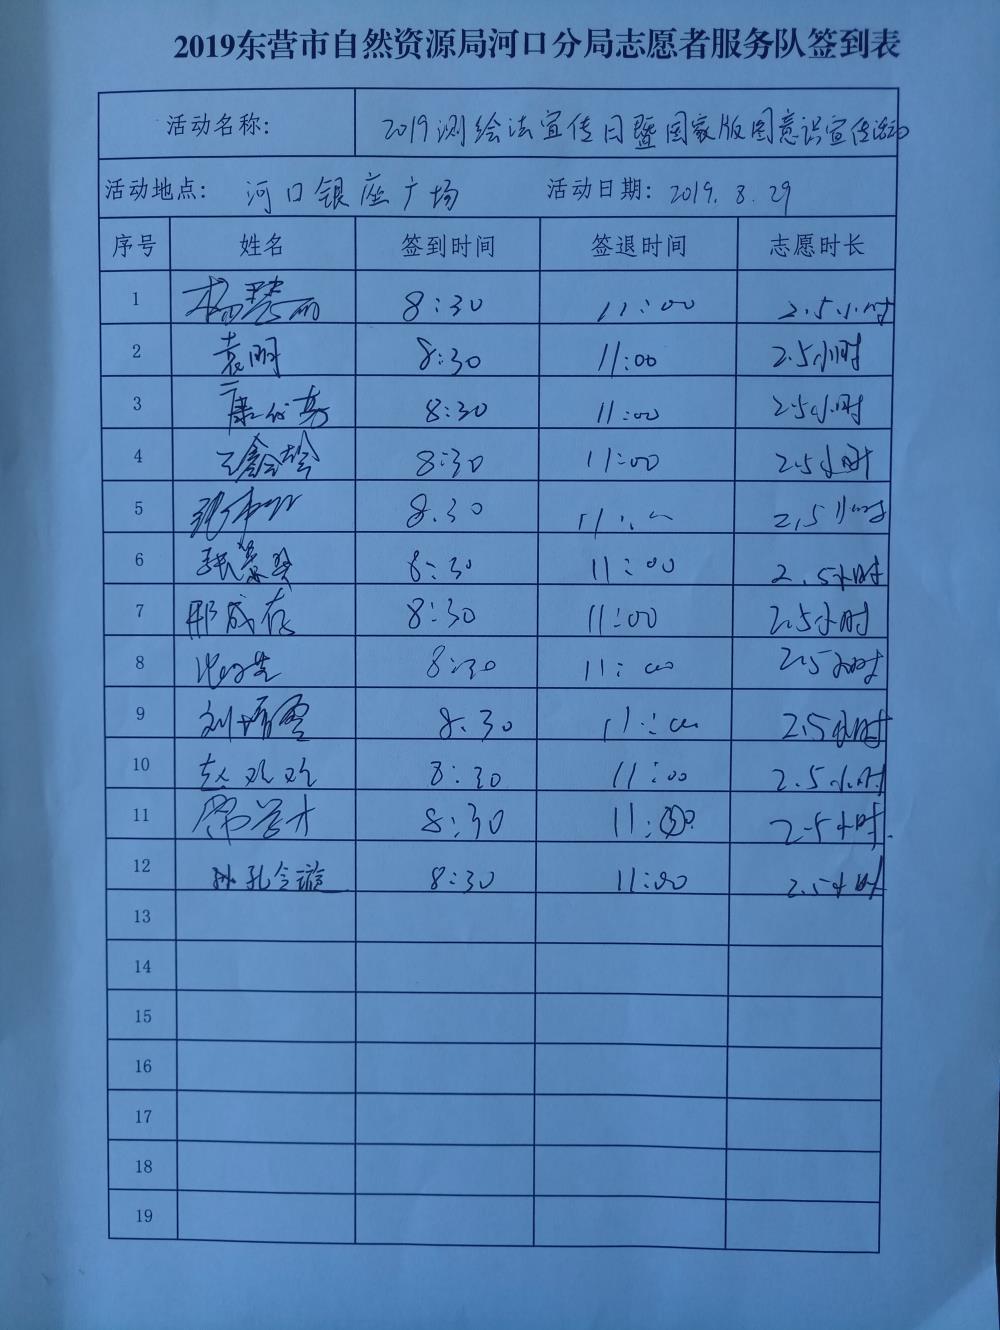 2019东营市自然资源局河口分局志愿者服务队签到表
活动名称: 2019测绘法宣传日暨国家版图意识宣传活动
活动地点: 河口银座广场 活动日期: 2019.8.29
序号 姓名 签到时间 签退时间 志愿时长
1 8:30 11:00 2.5小时
2 袁明 8:30 11:00 2.5小时
3 8:30 11:00 2.5小时
4 8:30 11:00 2.5小时
5 8.30 2.5小时
6 8:30 11:00 2.5小时
7 邢成存 8:30 11:00 2.5小时
8 8:30 11:00 2.5小时
9 8.30 11:00 2.5小时
10 赵欢欢 8:30 11:00 2.5小时
11 8:30 11: 2.5小时.
12 孔令璇 8:30 11:00 2.5小时
13
14
15
16
17
18
19